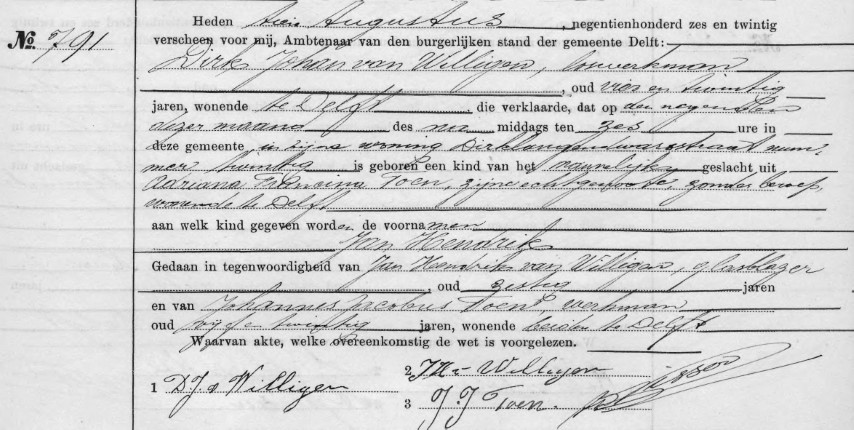 No. 791
Heden tien Augustus, negentienhonderd zes en twintig
verscheen voor mij, Ambtenaar van den burgerlijken stand der gemeente Delft:
Dirk Johan van Willigen, touwerkman
, oud vier en twintig
jaren, wonende te Delft, die verklaarde, dat op den negenden
dezer maand des na middags ten zes ure in
deze gemeente in zijne woning Dirklangendwarsstraat num-
mer twintig is geboren een kind van het mannelijk geslacht uit
Adriana Francina Toen, zijne echtgenoote zonder beroep,
wonende te Delft
aan welk kind gegeven worden de voornamen
Jan Hendrik
Gedaan in tegenwoordigheid van Jan Hendrik van Willigen, glasblazer
, oud zestig jaren
en van Johannes Jacobus Toen, werkman
oud vijf en twintig jaren, wonende beiden te Delft
Waarvan akte, welke overeenkomstig de wet is voorgelezen.
2 JH v Willigen
1 D.J. v Willigen
3 J J Toen.